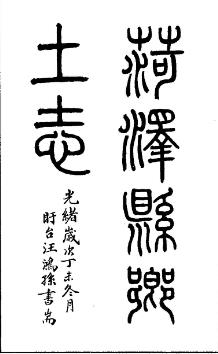 菏澤縣鄉
土志
光緒歲次丁未冬月
盱台汪鴻孫書耑